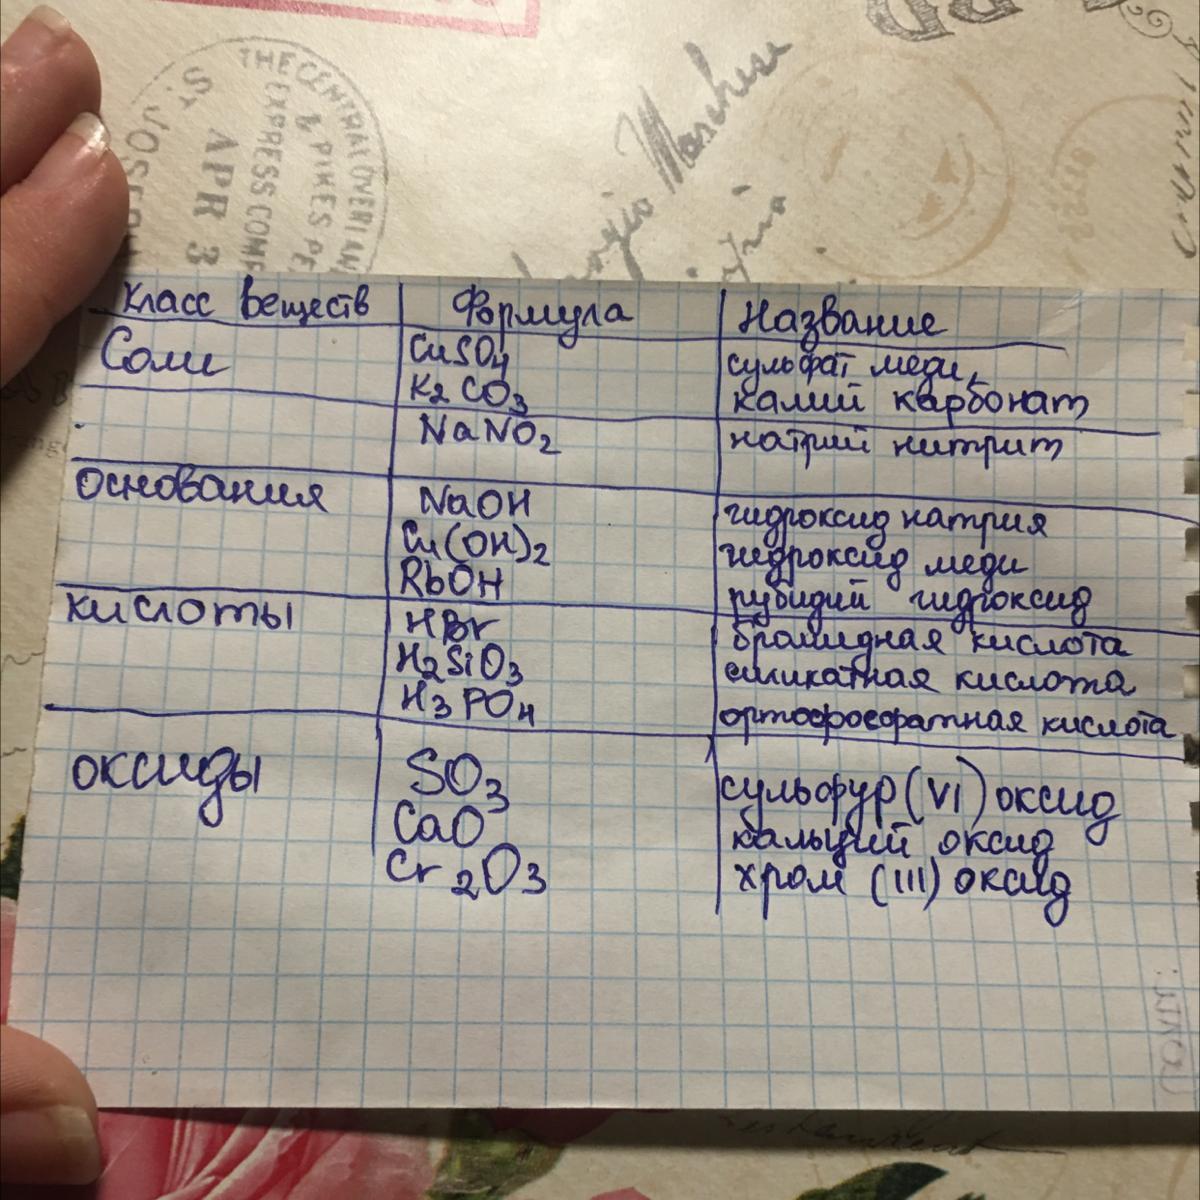 THE CENTRAL OVERLAN
EXPRESS COMP
& PIKES PE
ST. JOSEPH
APR 3
Marchese
Класс веществ Формула Название
Соли CuSO4 сульфат меди,
K2CO3 калий карбонат
NaNO2 натрий нитрит
основания NaOH гидроксид натрия
Cu(OH)2 гидроксид меди
RbOH рубидий гидроксид
кислоты HBr бромидная кислота
H2SiO3 силикатная кислота
H3PO4 ортофосфатная кислота
оксиды SO3 сульфур (VI) оксид
CaO кальций оксид
Cr2O3 хром (III) оксид